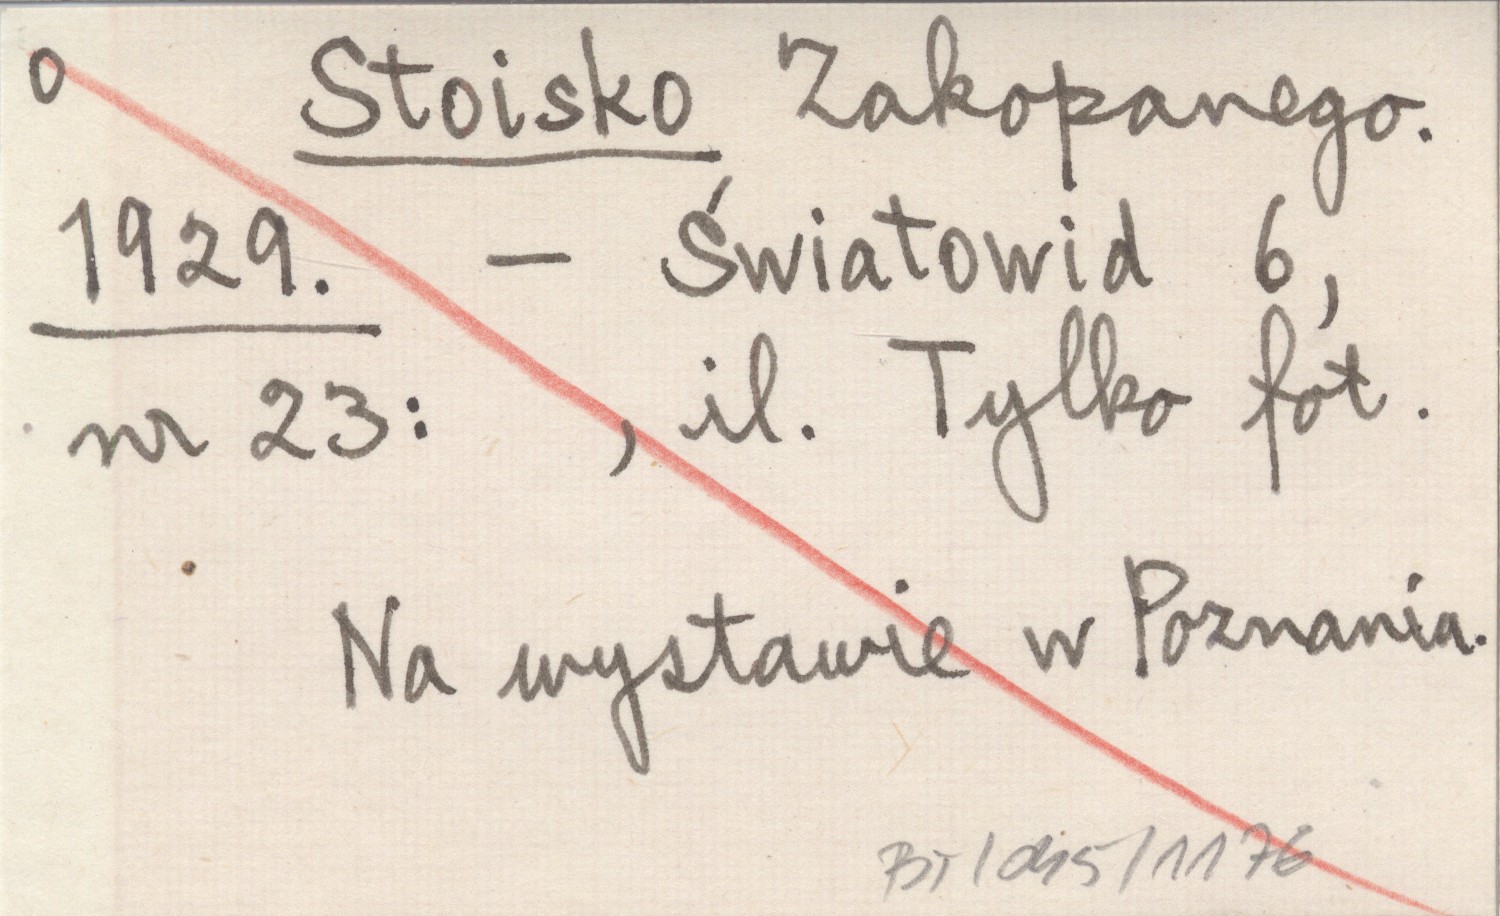 o Stoisko Zakopanego.
1929. – Światowid 6,
nr 23: , il. Tylko fot.
Na wystawie w Poznania.